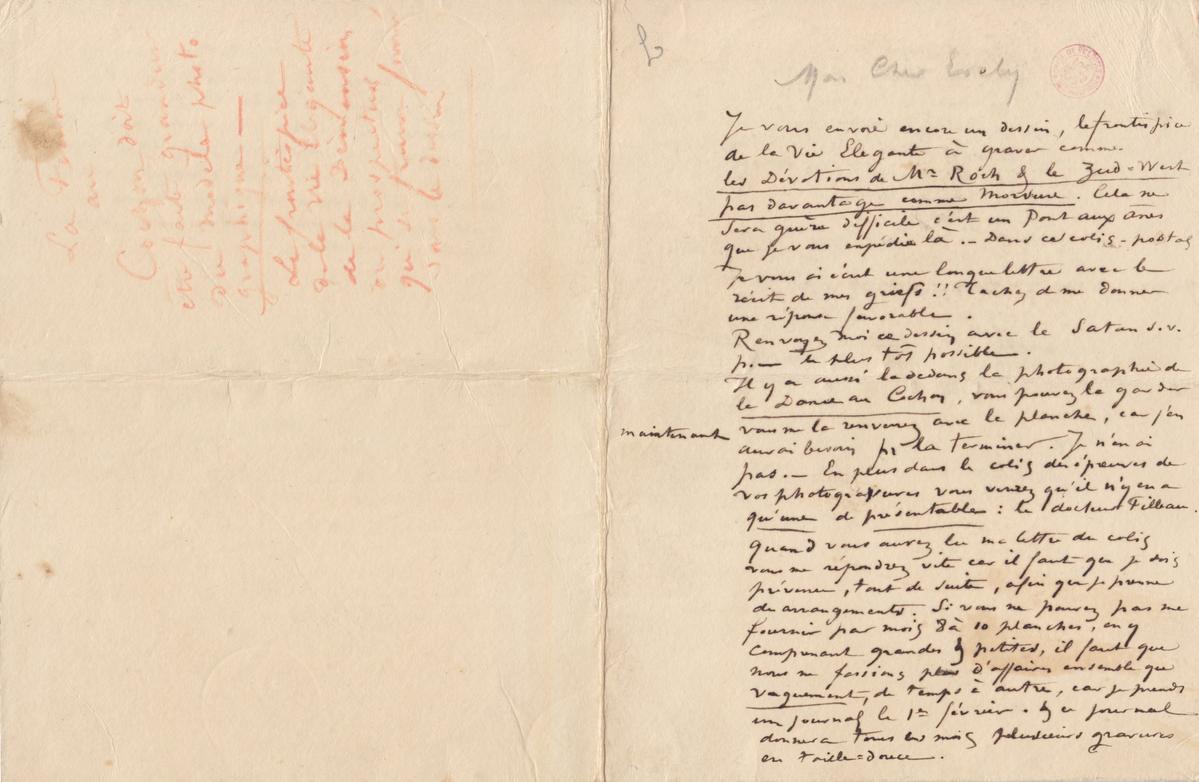 La Femme
au
Cochon doit
etre fait grandeur
du modèle photo
graphique —
Le frontispice
de la Vie Elégante
de la Dimension
ou prospectus
qui se trouve
dans le dessin
Mon Cher Evely
Je vous envoie encore un dessin, le frontispice
de la Vie Elegante à graver comme
les Dévotions de Mr Roch & le Zud-West
pas davantage comme Morsure. Cela ne
sera guère difficile c'est un Pont aux ânes
que je vous expédie là. — Dans ce colis-postal
Je vous ai écrit une longue lettre avec le
récit de mes griefs!! Tachez d me donner
une réponse favorable.
Renvoyez moi ce dessin avec le Satan s.v.
p. — le plus tôt possible.
Il y a aussi la dedans la photographie de
la Dame au Cochon, vous pouvez la garder
maintenant vous me la renverrez avec la planche, car j'en
aurai besoin pr la terminer. Je n'en ai
pas. — En plus dans le colis des épreuves de
vos photogravures vous verrez qu'il n'y en a
qu'une de présentable : le docteur Filleau.
Quand vous aurez lu ma lettre du colis
vous me répondrez vite car il faut que je sois
prévenu, tout de suite, afin que je prenne
des arrangements. Si vous ne pouvez pas me
fournir par mois 8 à 10 planches, en y
comprenant grandes & petites, il faut que
nous ne fassions plus d'affaires ensemble que
vaguement, de temps à autre, car je prends
un journal le 1er février. & ce journal
donnera tous les mois plusieurs gravures
en taille=douce.